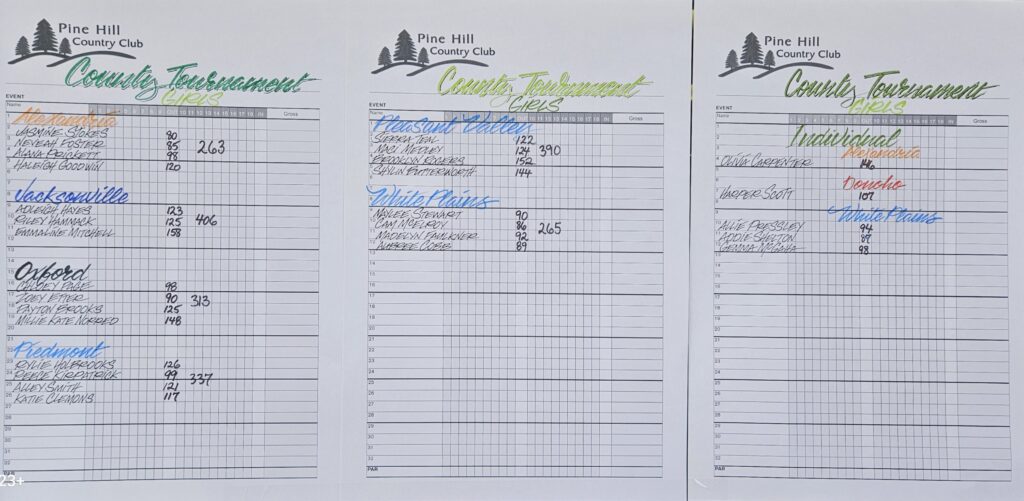 Pine Hill
Country Club
County Tournament
GIRLS
EVENT
Name Gross
Alexandria
JASMINE STOKES 80
NEVEAH FOSTER 85 263
ALANA PRICKETT 98
HALEIGH GOODWIN 120
Jacksonville
ADLEIGH HAYES 123
RILEY HAMMACK 125 406
EMMALINE MITCHELL 158
Oxford
98
ZOEY 90 313
PAYTON BROOKS 125
MILLIE KATE NORRED 148
Piedmont
RYLIE HOLBROOKS 126
REECE KIRKPATRICK 99 337
ALLEY SMITH 121
KATIE CLEMONS 117
PAR
23+
Pine Hill
Country Club
County Tournament
GIRLS
EVENT
Name Gross
Pleasant Valley
SIERRA 122
MACI MEDLEY 124 390
BROOKLYN ROGERS 152
SHYLIN BUTTERWORTH 144
White Plains
BAYLEE STEWART 90
CAM McELROY 86 265
MADELYN FAULKNER 92
AUBREE COBB 89
PAR
Pine Hill
Country Club
County Tournament
GIRLS
EVENT
Name Gross
Individual
Alexandria
OLIVIA CARPENTER 146
Donoho
HARPER SCOTT 107
White Plains
ALLIE PRESSLEY 94
ADDIE SHELTON 87
GEMMA McGAHA 98
PAR